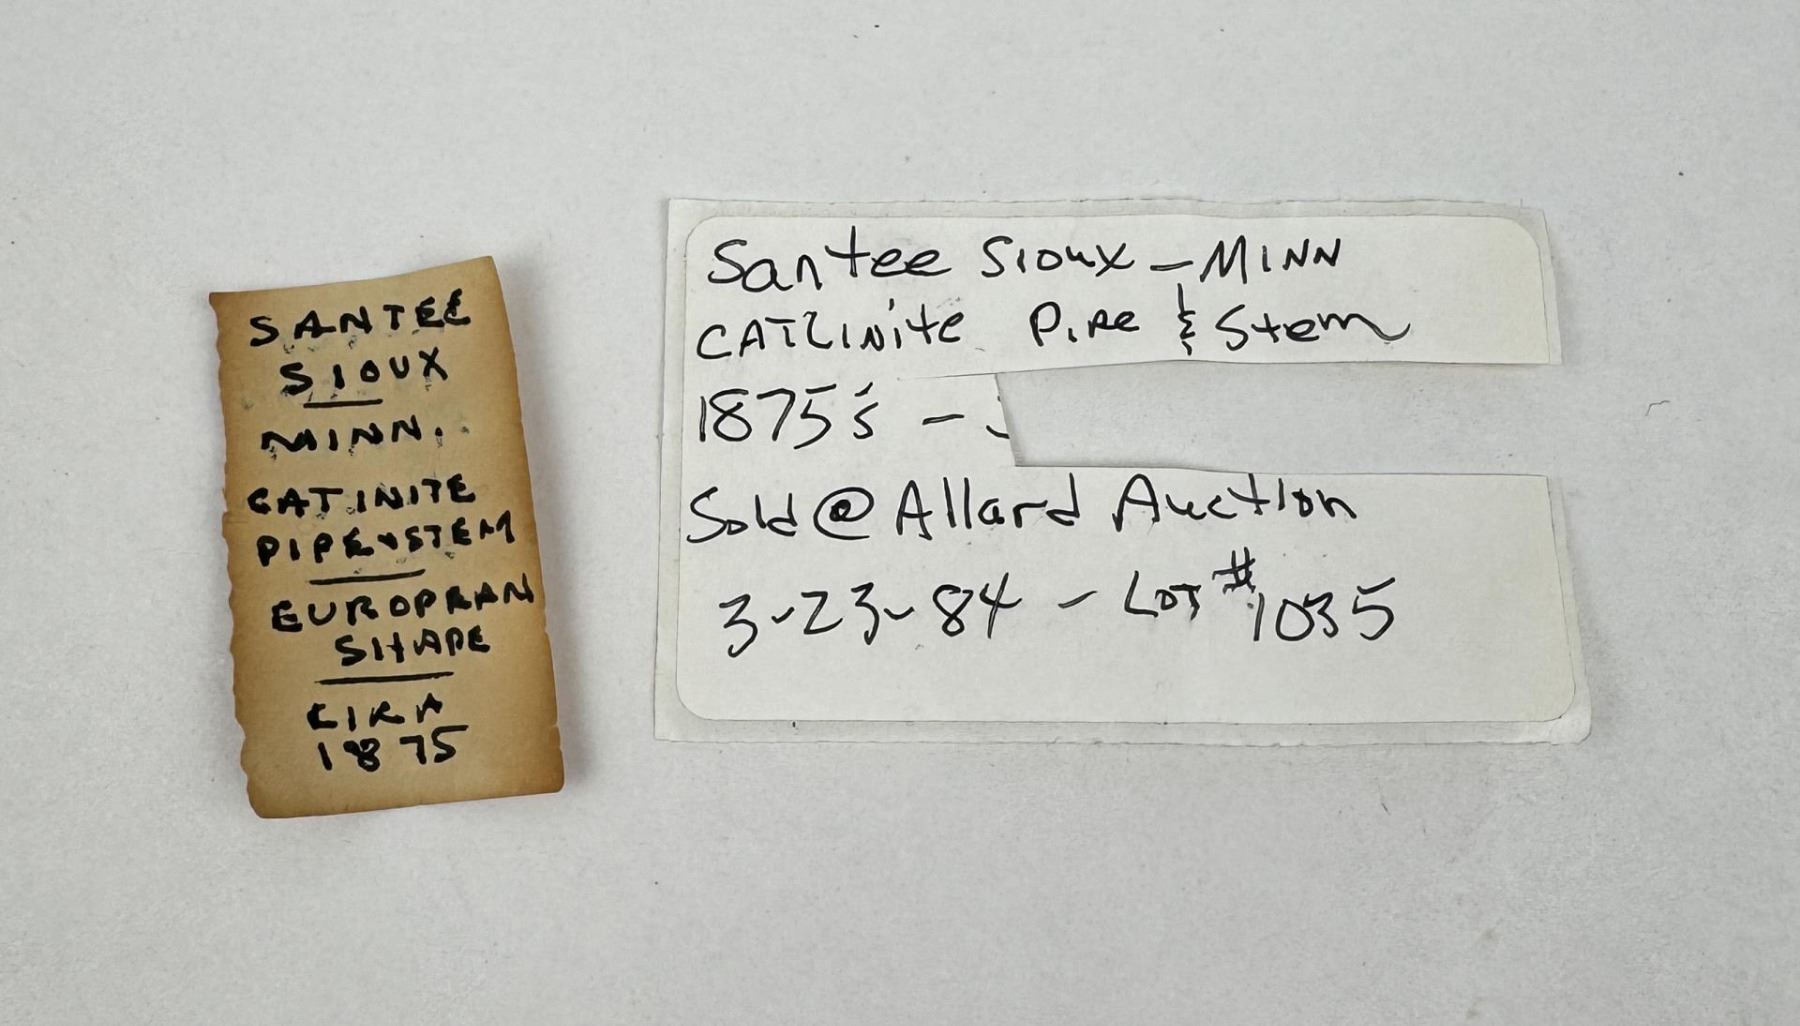 SANTEE
SIOUX
MINN.
CATINITE
PIPE & STEM
EUROPEAN
SHAPE
CIRA
1875
Santee Sioux - MINN
CATLINITE Pipe & Stem
1875's -
Sold @ Allard Auction
3-23-84 - LOT # 1035